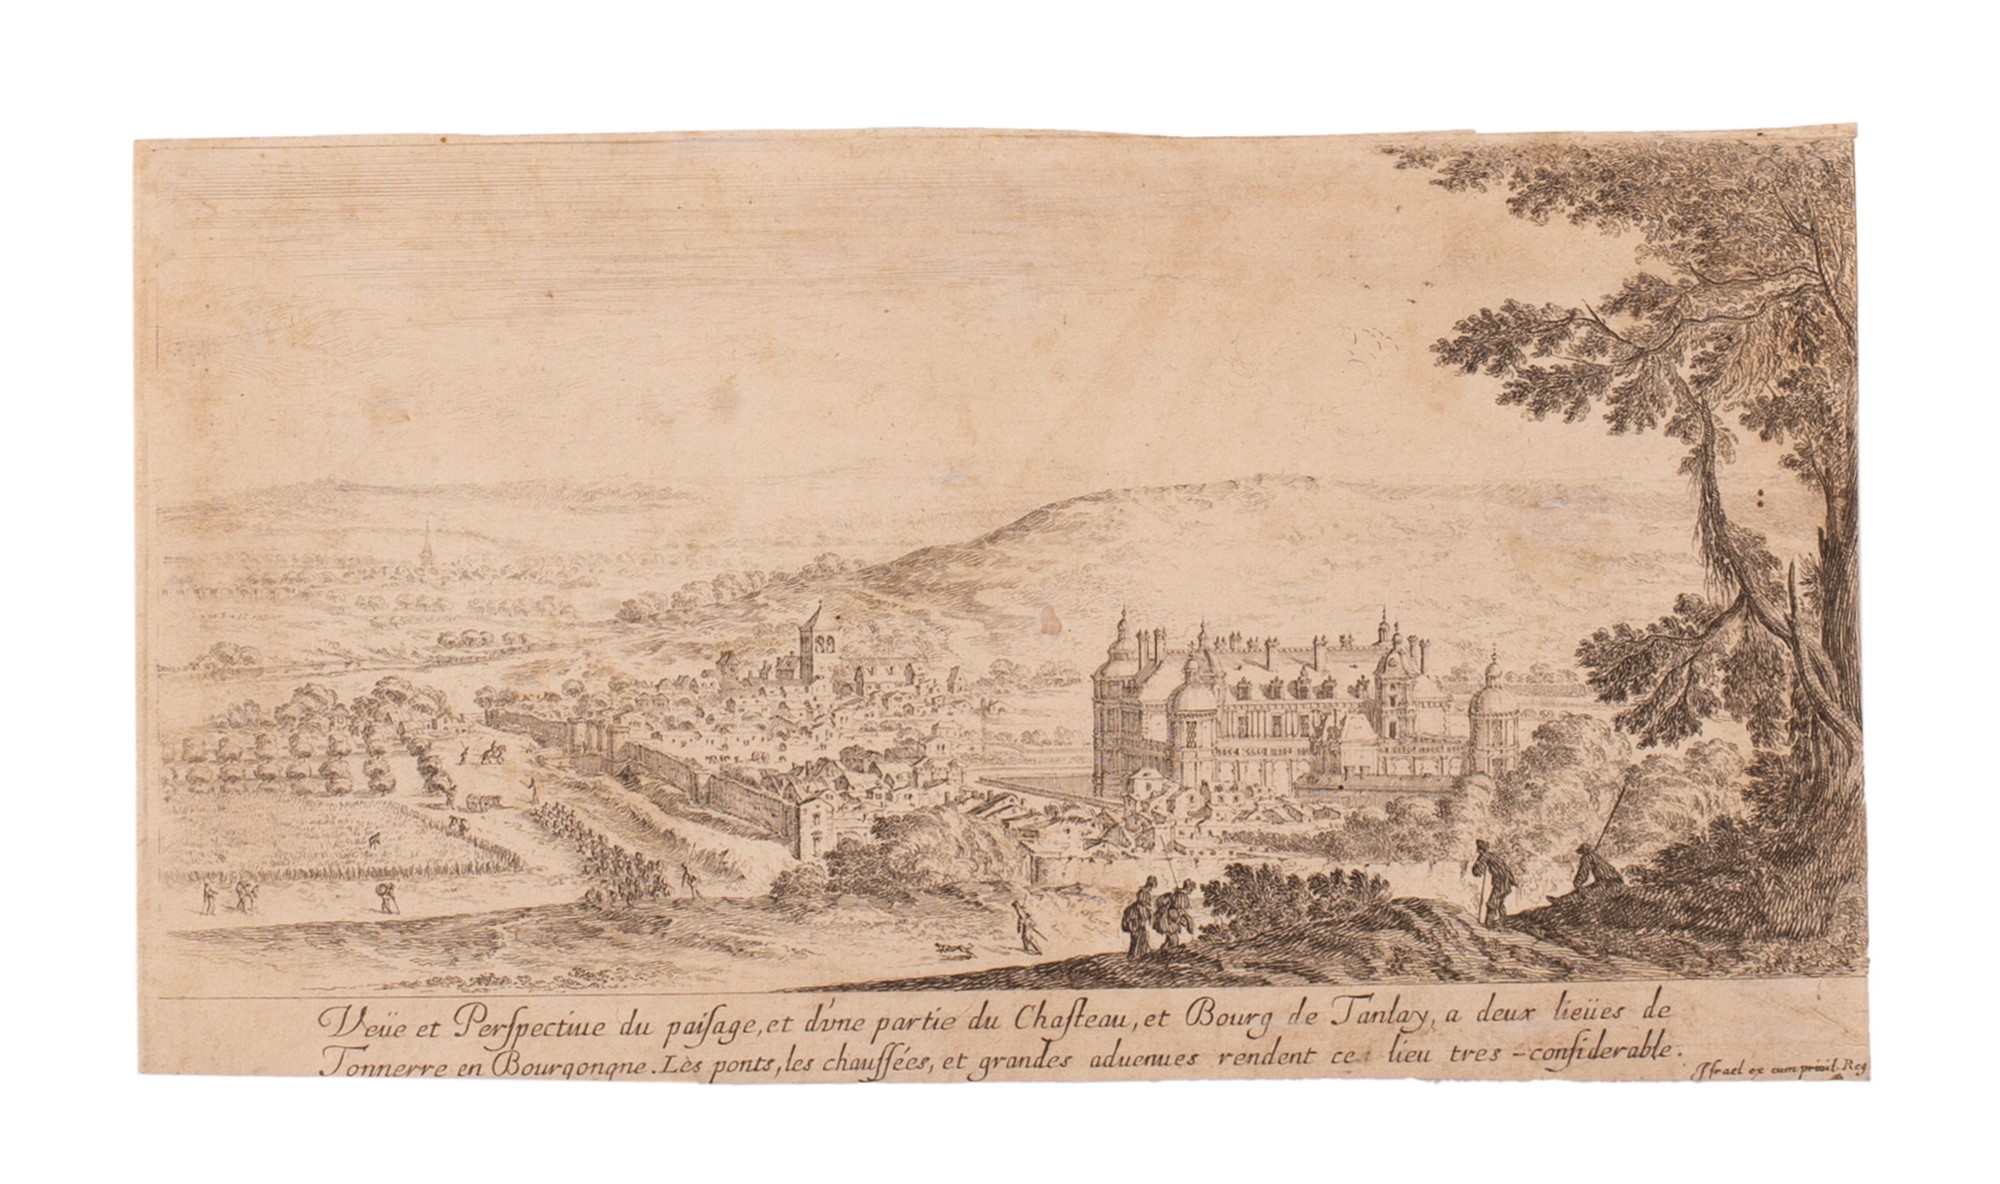 Veüe et Perſpectiue du paiſage, et d'vne partie du Chaſteau, et Bourg de Tanlay, a deux lieües de
Tonnerre en Bourgongne. Lès ponts, les chauſſées, et grandes aduenues rendent ce lieu tres-conſiderable.
Iſrael ex cum priuil. Reg